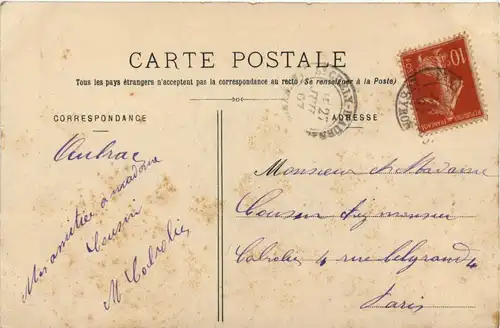 CARTE POSTALE
Tous les pays étrangers n'acceptent pas la correspondance au recto (Se renseigner à la Poste)
CORRESPONDANCE
ADRESSE
Aubrac
Mes amitiés a madame
Cousin
M Cabrolié
Monsieur et Madame
monsieur
Cabrolié 4 rue belgrand 4
Paris
10